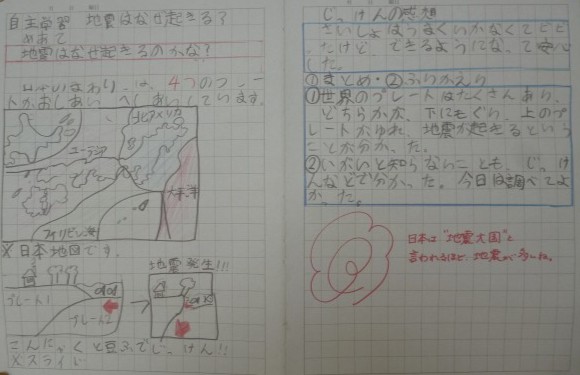 自主学習 地震はなぜ起きる?
めあて
地震はなぜ起きるのかな?
4つのプレー
トがおしあいへしあいしています。
北アメリカ
ユーラシア
太平洋
フィリピン海
※日本地図です。
地震発生!!!
プレート1
プレート2
こんにゃくと豆ふでじっけん!!
※スライム
じっけんの感想
さいしょはうまくいかなくて
たけど、できるようになって
した。
①まとめ・②ふりかえり
①世界のプレートはたくさんあり、
どちらかが、下にもぐり、上のプ
レートがゆれ、地震が起きるという
ことが分かった。
②いがいと知らないことも、じっけ
んなどで分かった。今日は調べてよ
かった。
日本は"地震大国"と
言われるほど、地震が多いね。